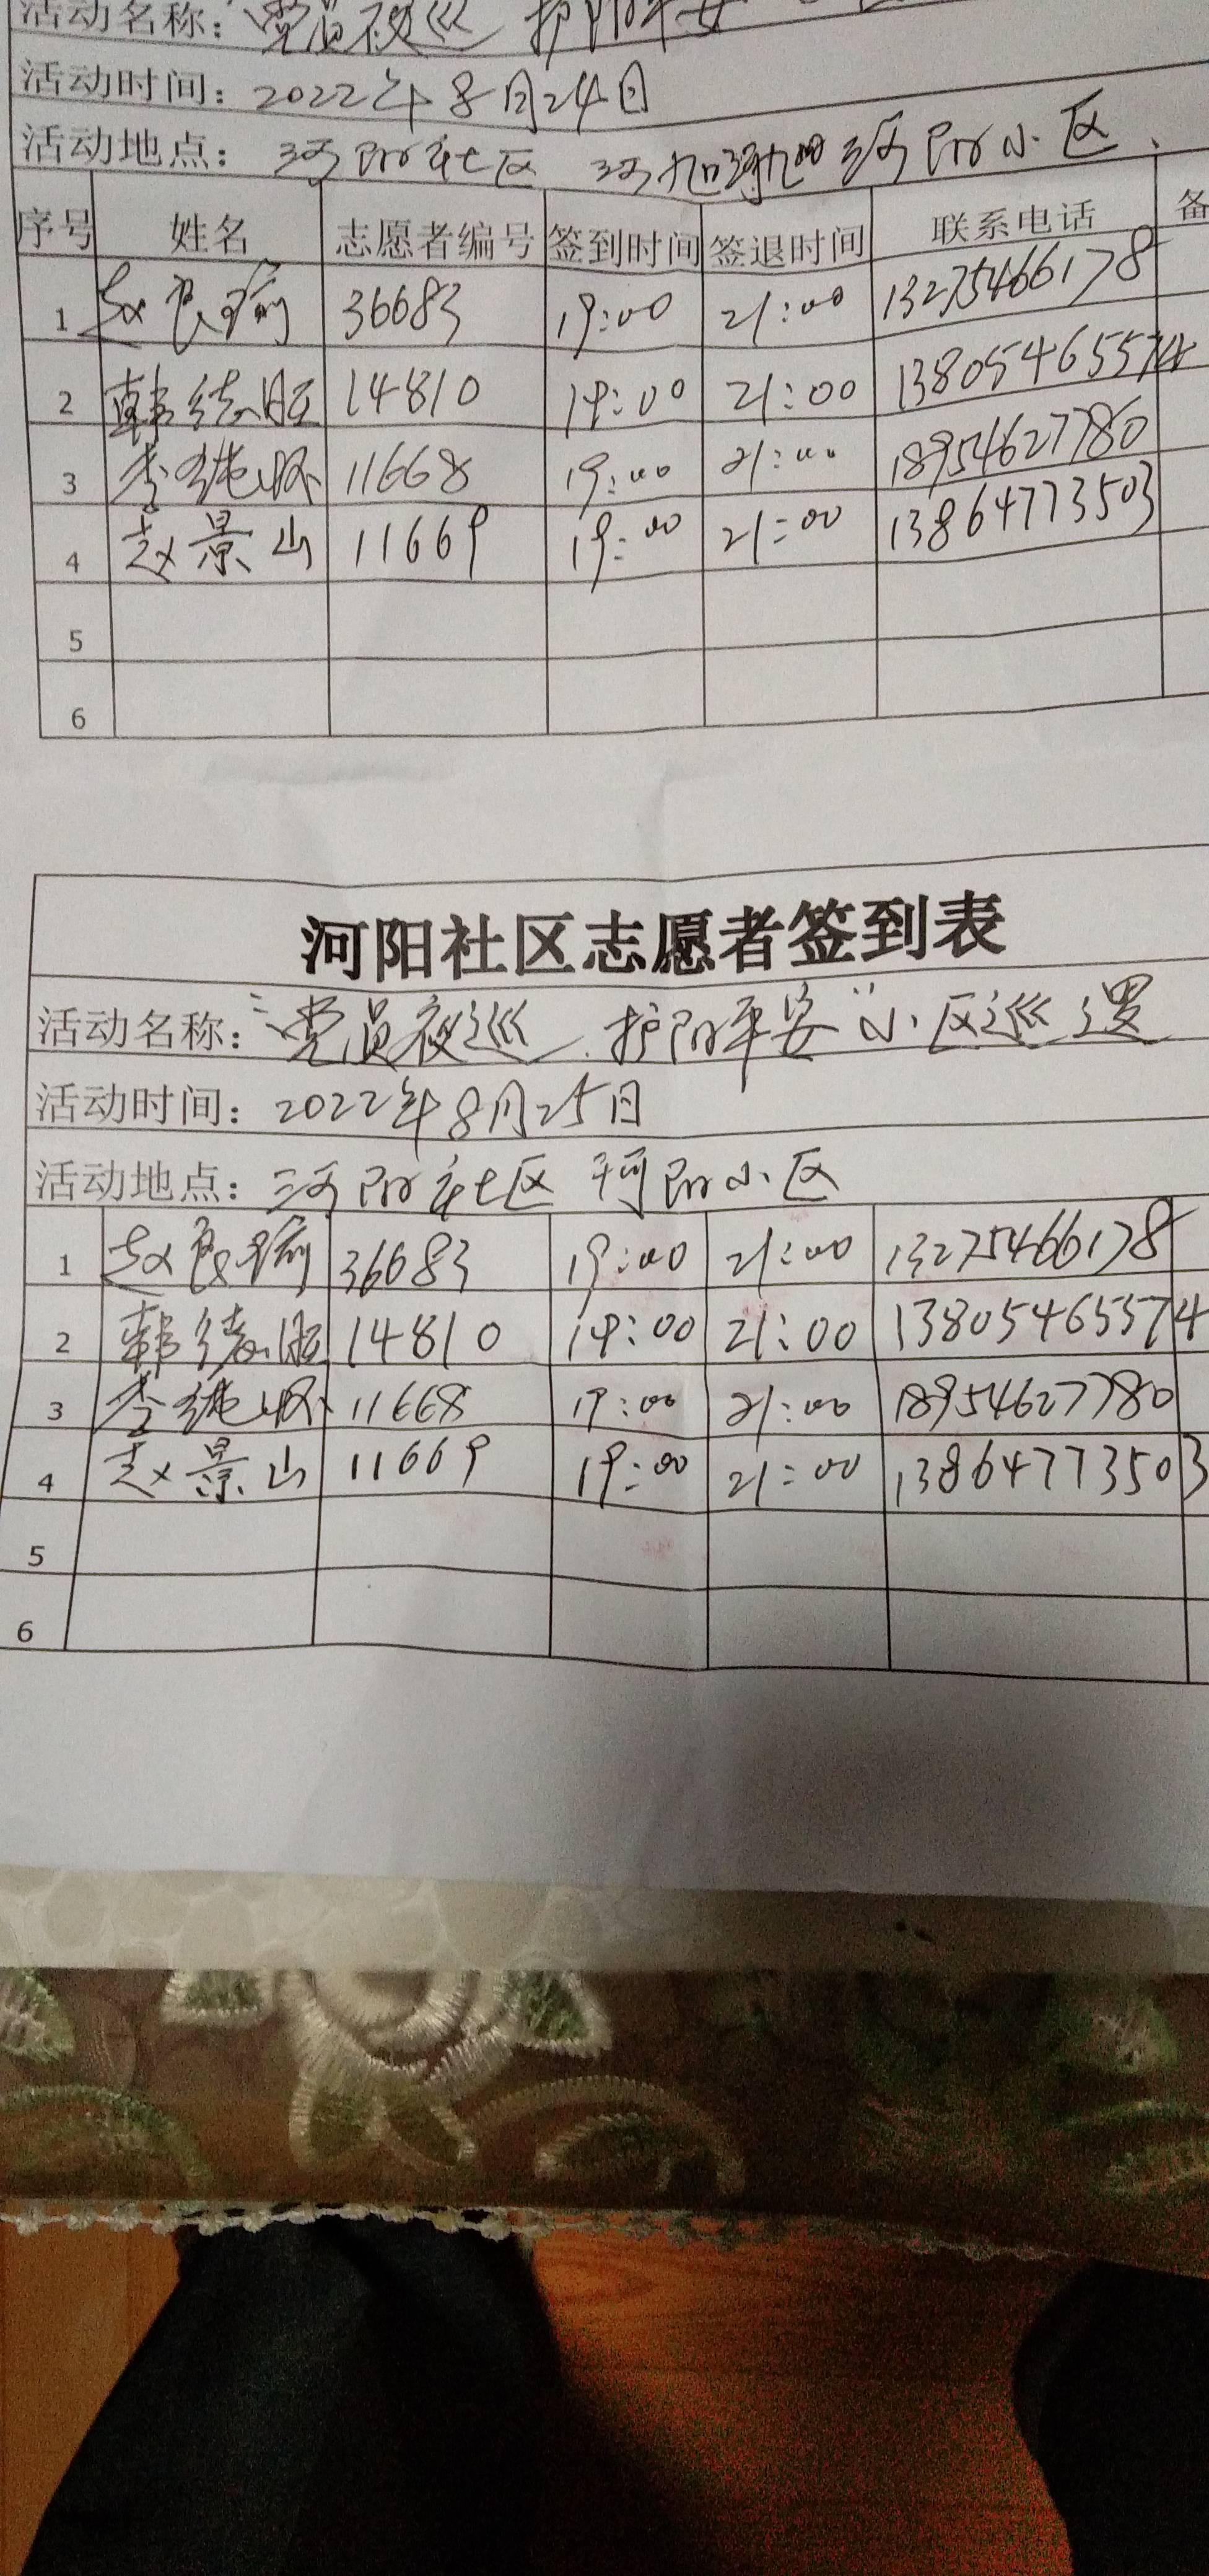 活动名称：“党员夜巡 护阳平安
活动时间：2022年8月24日
活动地点：河阳社区 河阳小区
序号 姓名 志愿者编号 签到时间 签退时间 联系电话 备
1 赵良瑜 36683 19:00 21:00 13275466178
2 韩德旺 14810 19:00 21:00 13805465574
3 李继 11668 19:00 21:00 18954627780
4 赵景山 11669 19:00 21:00 13864773503
5
6
河阳社区志愿者签到表
活动名称：“党员夜巡 护阳平安”小区巡逻
活动时间：2022年8月25日
活动地点：河阳社区 河阳小区
1 赵良瑜 36683 19:00 21:00 13275466178
2 韩德旺 14810 19:00 21:00 13805465574
3 李继 11668 19:00 21:00 18954627780
4 赵景山 11669 19:00 21:00 13864773503
5
6